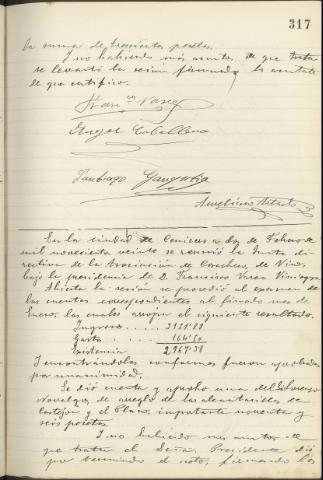 317
la suma de trescientas pesetas.
Y no habiendo más asuntos de que tratar
se levantó la sesión firmando los asistentes
de que certifico.
Fran.co Varea
Angel Caballero
Santiago
Aureliano
En la ciudad de Cenicero a dos de Febrero de
mil novecientos veinte se reunió la Junta di-
rectiva de la Asociación de Cosecheros de Vinos,
bajo la presidencia de D. Francisco Varea
Abierta la sesión se procedió al examen de
las cuentas correspondientes al finado mes de
Enero, las cuales arrojan el siguiente resultado.
Ingresos
Gastos
Existencia 2,967'38
Y encontrándolas conformes fueron aprobadas
por unanimidad.
Se dió cuenta y aprobó una de
de arreglo de las alcantarillas de
y el Plano, importante noventa y
seis pesetas.
Y no habiendo más asuntos de
que tratar el Señor Presidente dió
por terminado el acto, firmando los